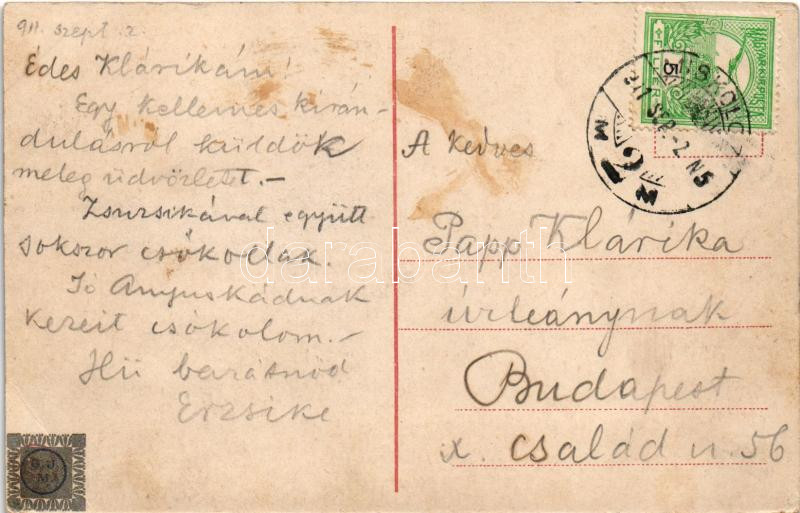 911. szept. 2.
Édes Klárikám!
Egy kellemes kirán-
dulásról küldök
meleg üdvözletet.-
Zsuzsikával együtt
sokszor csókodak.
Jó Anyuskádnak
kezeit csókolom.-
Hű barátnőd
Erzsike
A kedves
Papp Klárika
úrleánynak
Budapest
x. család u. 56
MISKOLC
5
MAGYAR KIR. POSTA
darabanth